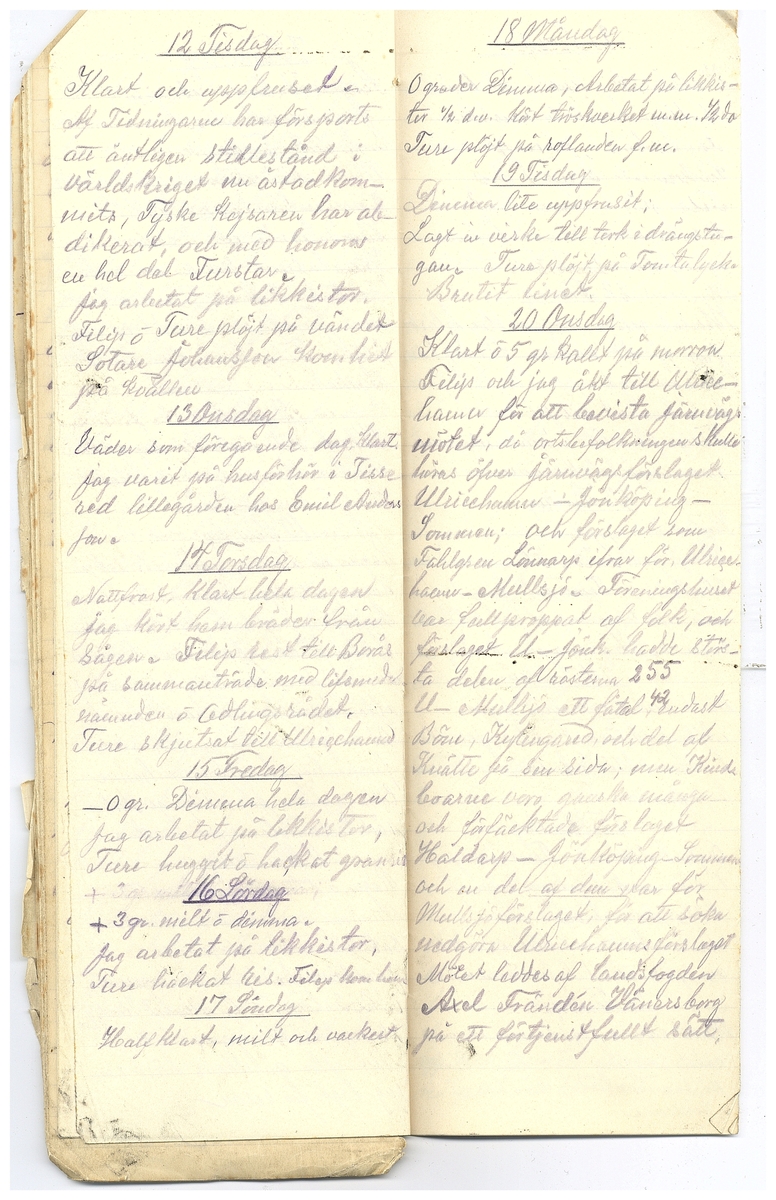 12 Tisdag.
Klart och uppfruset.
Af Tidningarne har försports
att äntligen stillestånd i
världskriget nu åstadkom-
mits, Tyske Kejsaren har ab-
dikerat, och med honom
en hel del Furstar.
Jag arbetat på likkistor.
Filip ö Ture plöjt på vändet
Sotare Johansson kom hit
på kvällen
13 Onsdag
Väder som föregående dag. Klart.
Jag varit på husförhör i Tisse
red lillegården hos Emil Anders
son.
14 Torsdag
Nattfrost, Klart hela dagen
jag kört hem bräder från
Sågen. Filip rest till Borås
på sammanträde med lifsmedel
nämnden ö Odlingsrådet.
Ture skjutsat till Ulricehamn
15 Fredag
– 0 gr. Dimma hela dagen
Jag arbetat på likkistor,
Ture huggit ö hackat granris
+ 3 gr. milt
16 Lördag
+ 3 gr. milt ö dimma.
Jag arbetat på likkistor,
Ture hackat ris. Filip kom hem
17 Söndag
Halfklart, milt och vackert.
18 Måndag
0 grader Dimma, Arbetat på likkis-
tor 1/2 d.v. kört tröskverket m.m. 1/2 do
Ture plöjt på roflanden f.m.
19 Tisdag
Dimma lite uppfrusit;
Lagt in verke till tork i drängstu-
gan. Ture plöjt på Tomtalyck.
Brutit linet.
20 Onsdag
Klart ö 5 gr kallt på morron
Filip och jag åkt till Ulrice-
hamn för att bevista järnvägs
mötet, då ortsbefolkningen skulle
höras öfver järnvägsförslaget
Ulricehamn – Jönköping –
Sommen; och förslaget som
Fåhlgren Lönnarp ifrar för, Ulrice-
hamn – Mullsjö. Föreningshuset
var fullproppat af folk, och
förslaget U – Jönk. hadde störs-
ta delen af rösterna 255
U – Mullsjö ett fåtal, 42 endast
Böne, Kylingared och del af
Knätte på sin sida; men Kinds
boarne voro ganska många
och förfäcktade förslaget
Haldarp – Jönköping – Sommen
och en del af dem var för
Mullsjöförslaget, för att söka
nedgöra Ulricehamnsförslaget
Mötet leddes af landsfogden
Axel Frändén Vänersborg
på ett förtjenstfullt sätt.